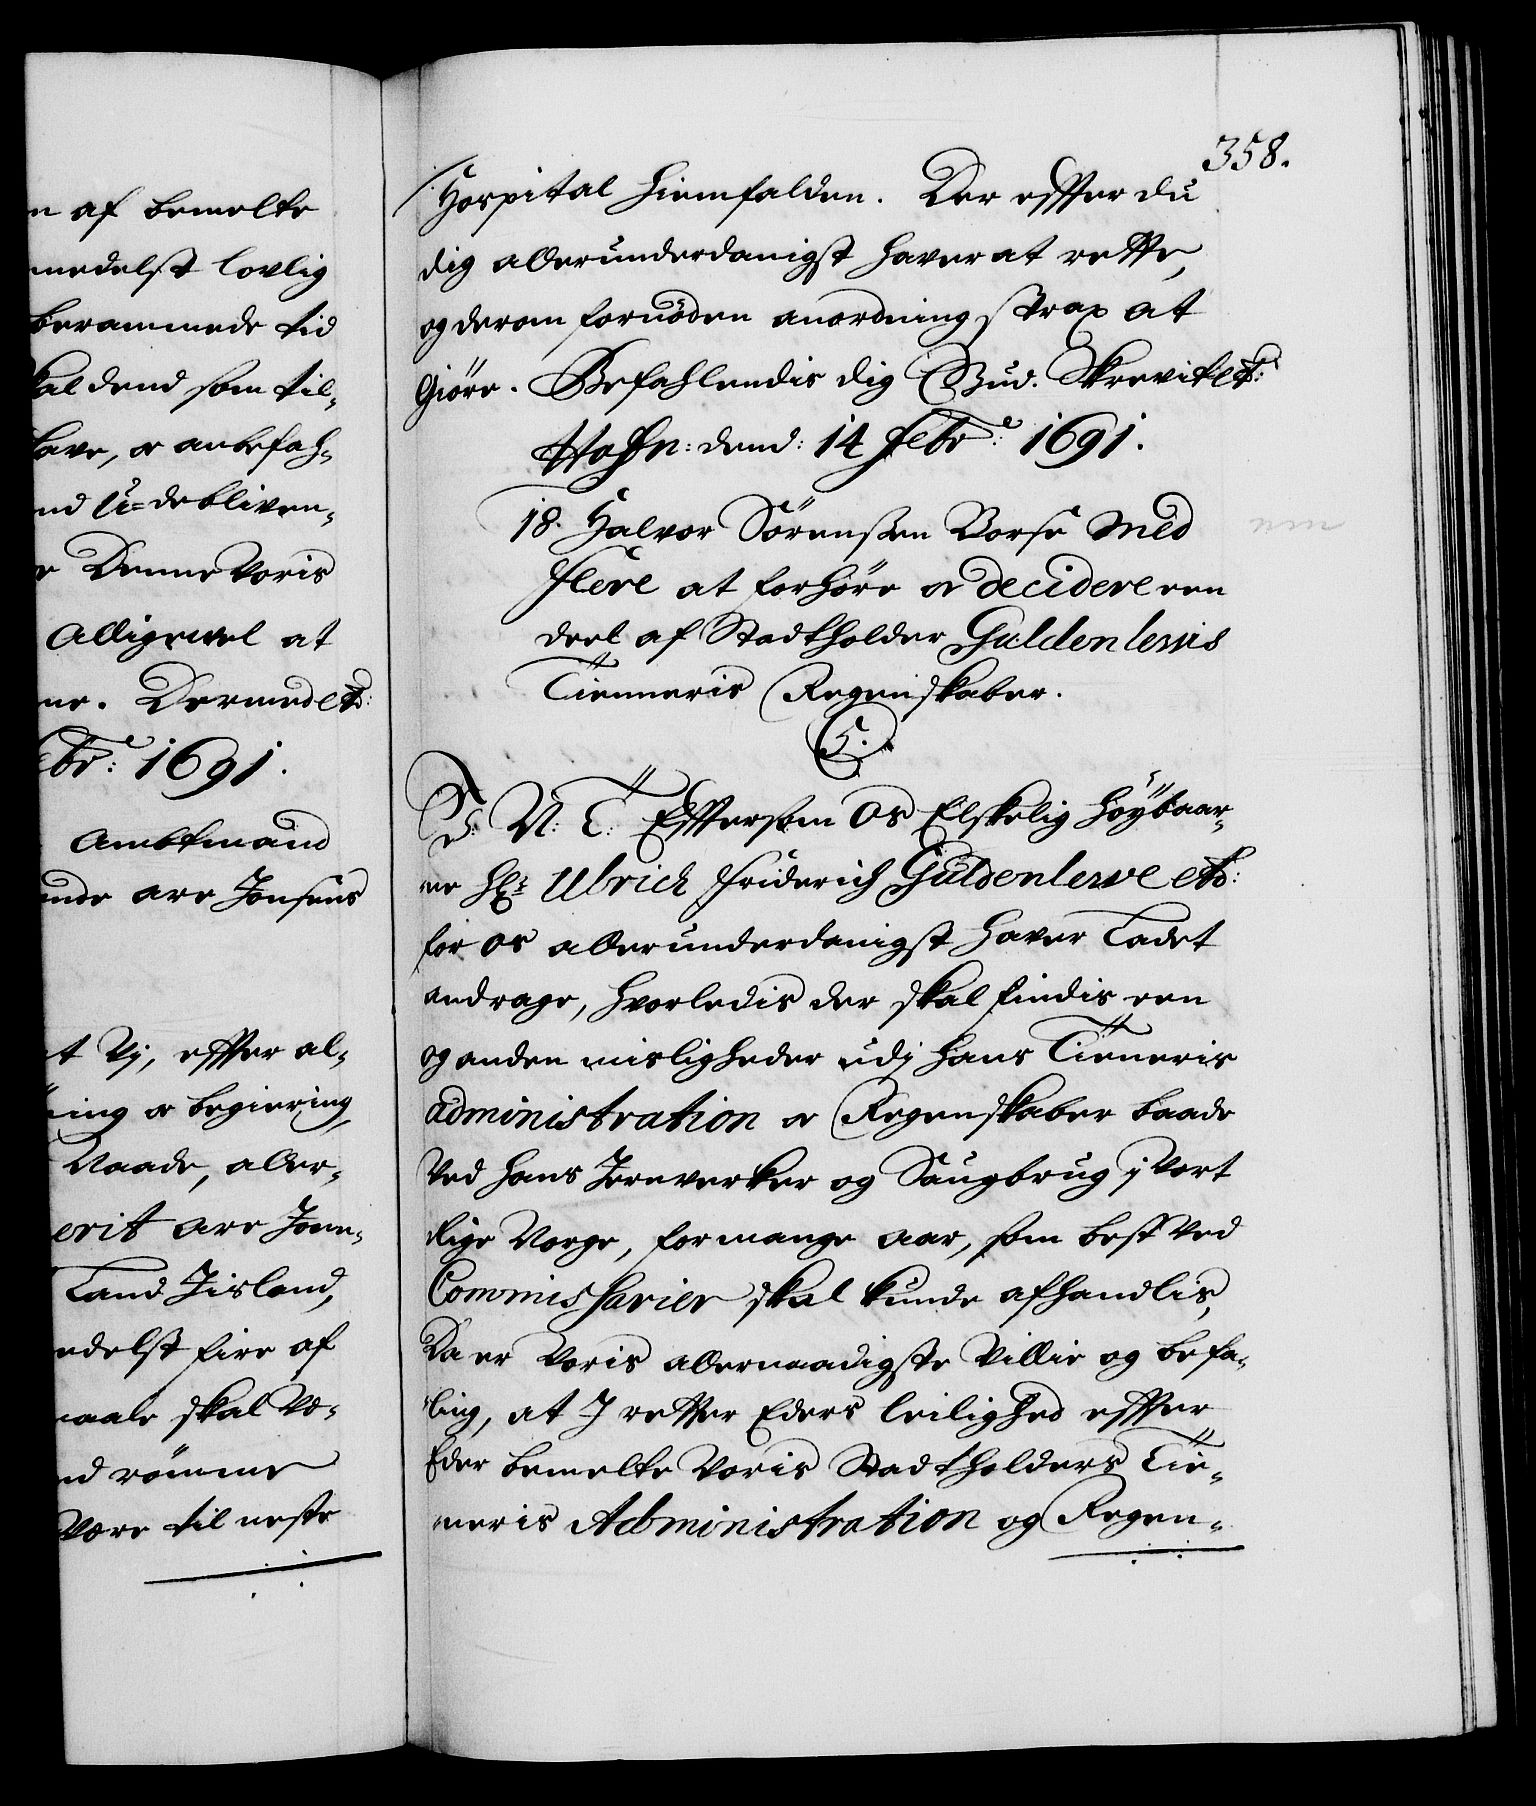 n af bemelte
medelst lovlig
berammede tid
kal dend som til-
have, oc anbefah-
nd U-debliven-
Denne Voris
Alligevel at
ne. Dermed etc:
ebr: 1691.
Ambtmand
ende are Jonsens
t Vi, effter al-
ning oc begiering,
Naade, aller-
erit are Jon-
Land Jisland,
edelst fire af
maale skal Væ-
nd römme
Være til neste
358.
Hospital hiemfalden. Der effter du
dig allerunderdanigst haver at rette,
og derom fornöden anordning strax at
Giöre. Befahlendis dig Gud. Skrevit etc:
Hafn: dend: 14 Febr: 1691.
18. Halvor Sörensßen Borse med
flere at forhöre oc decidere een
deel af Stadtholder Guldenlewis
Tienneris Regenskaber.
C5.
V: N: T: Effterssom Os Elskelig Höybaar-
ne Hr: Ulrich Friderich Güldenlewe etc:
for os allerunderdanigst haver Ladet
andrage, hvorledis der skal findis een
og anden misligheder udj hans Tieneris
administration oc Regenskaber baade
Ved hans Jernverker og Saugbrug i Vort
Rige Norge, for mange aar, som best Ved
Commissarier skal kunde afhandlis,
Da er Voris allernaadigste Villie og befa-
ling, at I retter Eders leilighed effter
Eder bemelte Voris Stadtholders Tie-
neris Administration og Regen-